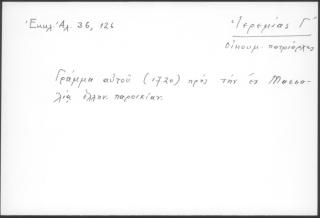 Ἐκκλ. Ἀλ. 36, 126
Ἱερεμίας Γ´
Οἰκουμ. πατριάρχης
Γράμμα αὐτοῦ (1720) πρὸς τὴν ἐν Μασσα-
λίᾳ ἑλλην. παροικίαν.